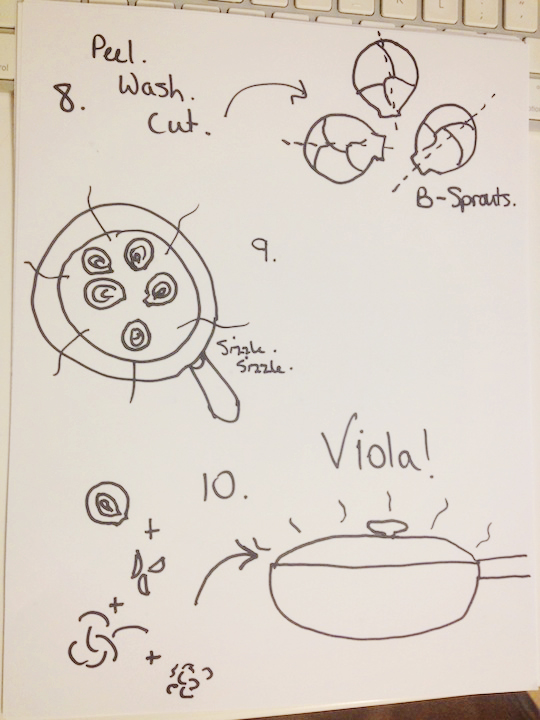 Peel.
8. Wash.
Cut.
B-Sprouts.
9.
Sizzle.
Sizzle.
10.
Viola!
+
+
+